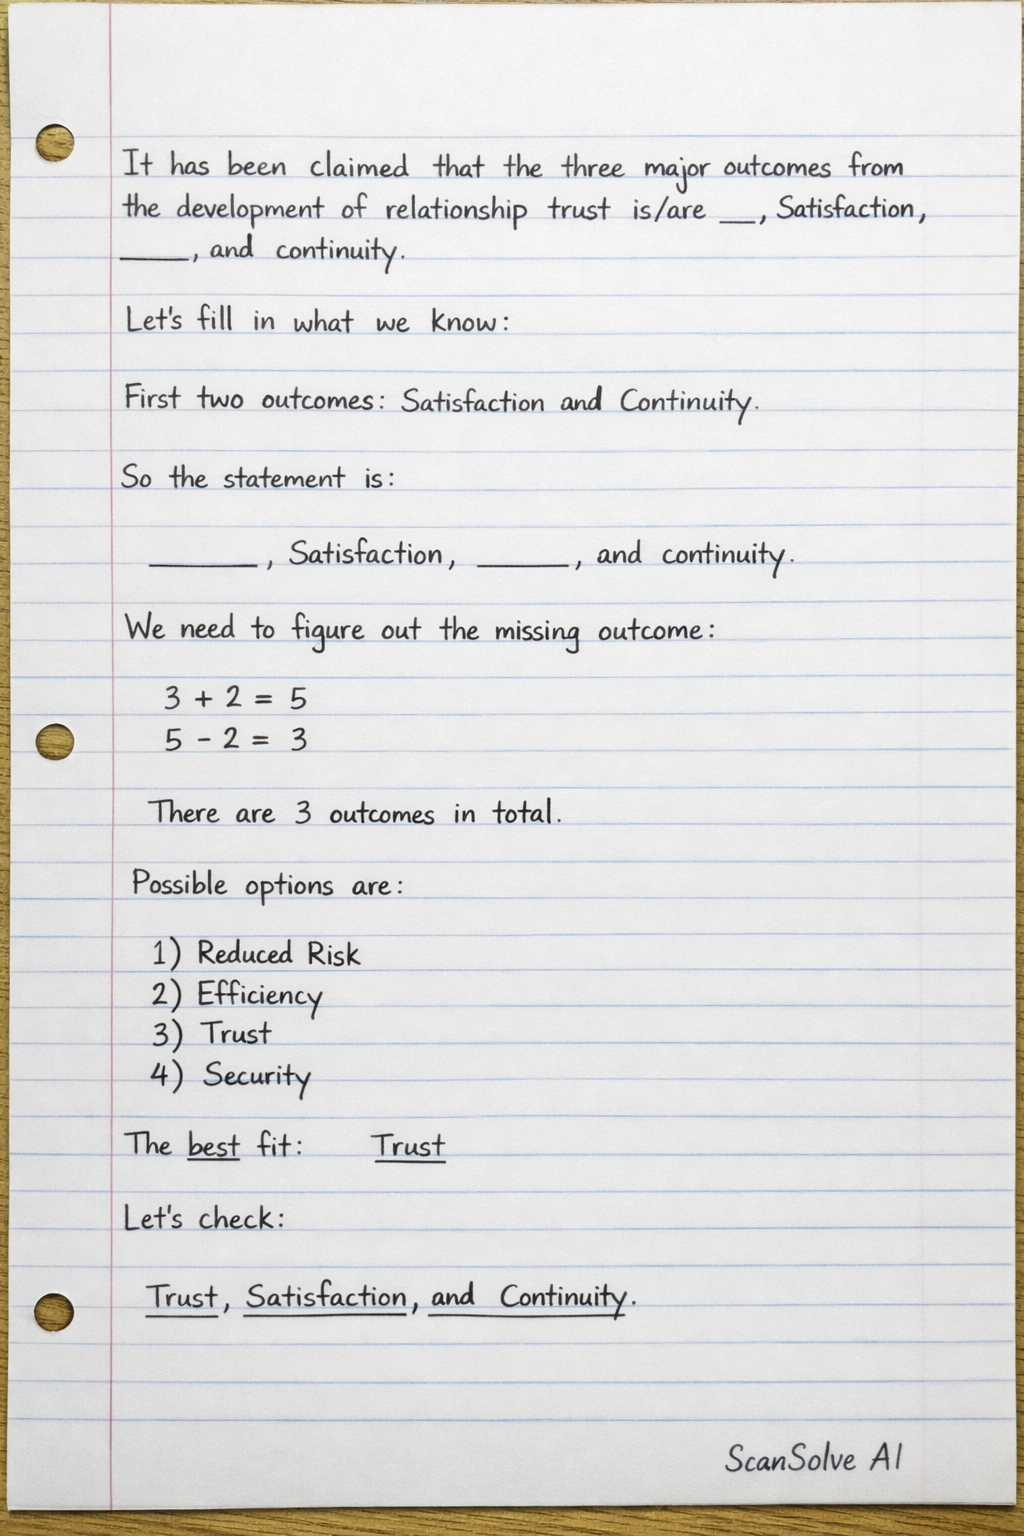 It has been claimed that the three major outcomes from
the development of relationship trust is/are __, Satisfaction,
____, and continuity.
Let's fill in what we know:
First two outcomes: Satisfaction and Continuity.
So the statement is:
______, Satisfaction, _____, and continuity.
We need to figure out the missing outcome:
3 + 2 = 5
5 - 2 = 3
There are 3 outcomes in total.
Possible options are:
1) Reduced Risk
2) Efficiency
3) Trust
4) Security
The best fit: Trust
Let's check:
Trust, Satisfaction, and Continuity.
ScanSolve AI